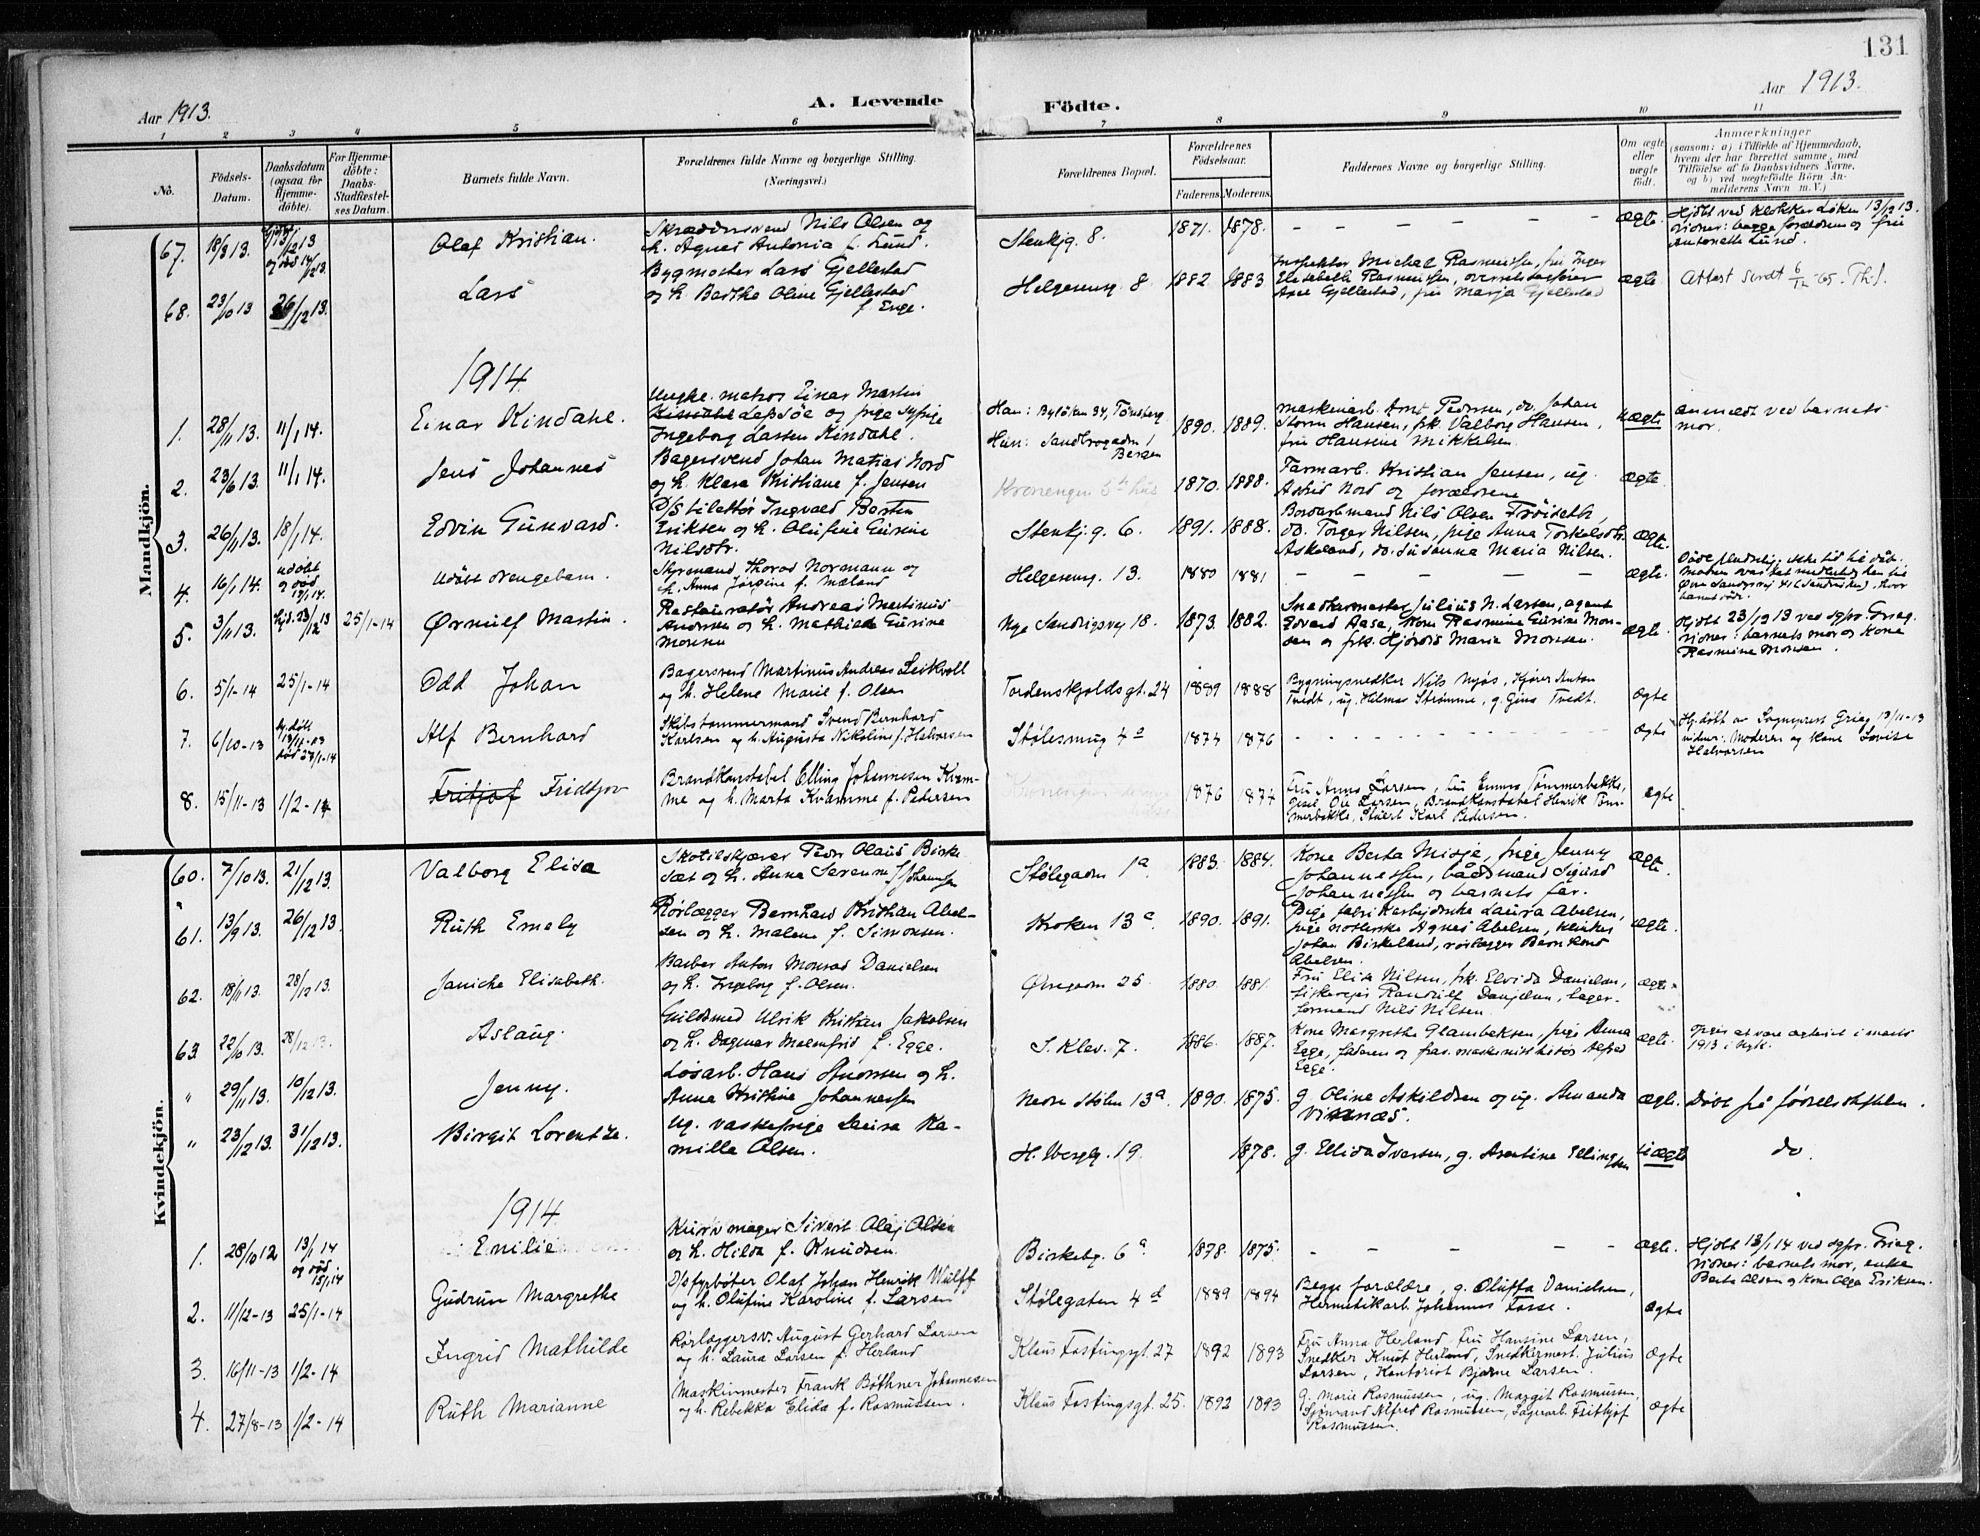 131
Aar 1913.
A. Levende
Födte.
Aar 1913.
1 2 3 4 5 6 7 8 9 10 11
No.
Födsels-Datum.
Daabsdatum (ogsaa for Hjemme-döbte).
For Hjemme-döbte: Daabs-Stadfæstel-ses Datum.
Barnets fulde Navn.
Forældrenes fulde Navne og borgerlige Stilling. (Næringsvei.)
Forældrenes Bopæl.
Forældrenes Födselsaar.
Faderens. Moderens.
Faddernes Navne og borgerlige Stilling.
Om ægte eller uægte födt.
Anmærkninger
(saasom: a) i Tilfælde af Hjemmedaab, hvem der har forrettet samme, med Tilföielse af to Daabsvidners Navne, og b) ved uægtefödte Börn An-melderens Navn m. V.)
Mandkjön.
67. 18/3 13. og död 14/12 13. Olaf Kristian. Skræddersvend Nils Olsen og
h. Agnes Antonia f. Lund. Stenkjg. 8. 1871. 1878. – – – – – – ægte. Hjdbt ved klokker Løken 13/12 13.
Vidner: begge forældrene og fru Antonette Lund.
68. 23/10 13 26/12 13. Lars Bygmester Lars Gjellestad
og h. Berthe Oline Gjellestad
f. Enge. Helgesensg. 8 1882 1883 Inspektør Michal Rasmussen, fru Inger
Elisabeth Rasmussen, overretssagfører
Gjellestad, fru Marja Gjellestad ægte Attest sendt 6/12-65. Th.J.
1914.
1. 28/11 13. 11/1 14. Einar Kindahl. Ungk. matros Einar Martin
Lepsøe og pige sypige
Ingeborg Lassen Kindahl. Han: Byløken 34, Tønsberg
Hun: Sandbrogaden 1
Bergen 1890. 1889. Maskinarb. Arnt Pedersen, do. Johan
Storm Hansen, frk. Valborg Hansen,
fru Hansine Mikkelsen. uægte anmeldt ved barnets
mor.
2. 23/6 13. 11/1 14. Jens Johannes Bagersvend Johan Matias Nord
og h. Klara Kristiane f. Jensen Kronengen 5te hus 1870. 1888. Tarmarb. Kristian Jensen, ug.
Astrid Nord og forældrene ægte.
3. 26/11 13. 18/1 14. Edvin Gunvard. D/S lilettør Ingvald Bertin
Eriksen og h. Olufine Gurine
Nilsdtr. Stenkj. g. 6. 1891. 1888. Nils Olsen Frøiseth,
do. Torger Nilsen, pige Anna Torkelsdtr.
Askeland, do. Susanna Maria Nilsen. ægte.
4. 16/1 14. udøbt og død 17/1 14. Udöbt drengebarn. Styrmand Thorod Normann og
h. Anna Jörgine f. Mæland Helgesensg. 13. 1880 1881 – – – – – – ægte. Døde pludselig, ikke tid til daab.
5. 3/11 13. hjd. 23/12 13 25/1-14 Ørnulf Martin. Restauratør Andreas Martinus
Andersen og h. Mathilde Gurine
Monsen Nye Sandvigsvej 18. 1873. 1882. Snedkermester Julius N. Larsen, agent
Edvard Aase, kone Rasmine Gurine Mon-
sen og frk. Hjördis Marie Monsen. ægte. Hjdbt 23/12 13 ved sgpr. Grieg.
Vidner: barnets mor og kone
Rasmine Monsen.
6. 5/1-14 25/1-14 Odd Johan Bagersvend Martinus Andreas Leikvoll
og h. Helene Marie f. Olsen Tordenskjoldsgt. 24 1889 1888 Bygningssnedker Nils Nyös, Kjörer Anton
Tvedt, ug. Helmer Strømme, g. Gina Tvedt. ægte
7. 6/10-13 hj. döbt 13/11-13 död 27/1-14 Alf Bernhard Skibstømmermand Svend Bernhard
Karlsen og h. Augusta Nikoline f. Halvorsen Stølesmug 4a 1874 1876 - - - - - - ægte Hj. döbt av Sogneprest Grieg 13/11-13
vidner: Moderen og kone Lovise
Halvorsen
8. 15/11-13 1/2-14 Fritjof Fridtjov Brandkonstabel Elling Johannesen Kvam-
me og h. Marta Kvamme f. Pedersen Kronengen 1876 1874 Fru Anna Larsen, fru Emma Tømmerbakke,
Ole Larsen, Brandkonstabel Henrik Tøm-
merbakke, Stuert Karl Pedersen. ægte
Kvindekjön.
60. 7/10 13. 21/12 13. Valborg Elisa Skotilskjærer Peder Olaus Birke
sæt og h. Anna Severine f. Johannesen Stølegaden 1a 1883. 1884. Kone Berta Misje, pige Jenny
Johannessen, baadsmand Sigurd
Johannessen og barnets far. ægte.
61. 13/9 13. 26/12 13. Ruth Emely Rørlægger Bernhard Kristian Abel-
sen og h. Malene f. Simonsen. Kroken 13c. 1890. 1891. Pige fabrikarbejderske Laura Abelsen,
pige Agnes Abelsen,
Johan Birkeland, rørlægger Bernhard
Abelsen. ægte.
62. 18/11 13. 28/12 13. Janicke Elisabeth. Barber Anton Monrad Danielsen
og h. Ingeborg f. Olsen. Øvregaden 25. 1880. 1881. Fru Elisa Nilsen, frk. Elvida Danielsen,
Randulf Danielsen, lager-
formand Nils Nilsen. ægte.
63 22/6 13. 28/12 13. Aslaug. Guldsmed Ulrik Kristian Jakobsen
og h. Dagmar Malenfrid f. Egge. S. Klev. 7. 1886. 1887. Kone Margrethe Glambeksen, pige Anna
Egge, faderen og frav. maskinist Alfred
Egge. ægte. Opgis at vare ægteviet i marts
1913 i
" 29/11 13. 10/12 13. Jenny. Løsarb. Hans Andersen og h.
Anna Kristine Johannessen Nedre Stølen 13a. 1890. 1875. g. Oline Askildsen og ug. Amanda
Vinnæs. ægte. Døbt på fødselsstiftelsen.
" 23/12 13. 31/12 13. Birgit Lorentze. Ug. vaskepige Laura Ka-
milla Olsen. H. Wergelg. 19. 1878. g. Elida Iversen, g. Arentine Ellingsen uægte do.
1914.
1. 28/10 12 13/1 14 og død 15/1 14 Emilie Kurvmager Sivert Olaj Olsen
og h. Hilda f. Knudsen. Birkebg. 6a. 1878. 1875. – – – – – ægte. Hjdbt 13/1 14 ved sgpr. Grieg.
Vidner: barnets mor, enke
Berta Olsen og kone Olga Eriksen.
2. 11/12-13 25/1-14 Gudrun Margrethe D/S fyrbøter Olaf Johan Henrik Wulff
og h. Olufine Karoline f. Larsen Stølegaten 4d 1889 1894 Begge forældre, g. Oluffa Danielsen,
Hermetikarb. Johannes Fosse. ægte
3. 16/11-13 1/2-14 Ingrid Mathilde Rørlæggersv. August Gerhard Larsen
og h. Laura Larsen f. Herland Klaus Fastingsgt. 27 1892 1893 Fru Anna Herland, Fru Hansine Larsen,
Snedker Knut Herland, Snedkermest. Julius
Larsen, Kontorist Bjarne Larsen. ægte
4. 27/8-13 1/2-14 Ruth Marianne Maskinmester Frank Bøthner Johannesen
og h. Rebekka Elida f. Rasmussen. Klaus Fastingsgt. 25. 1892 1893 g. Marie Rasmussen, ug. Margit Rasmussen,
Sjømand Alfred Rasmussen, Lagerarb. Fritjof
Rasmussen. ægte